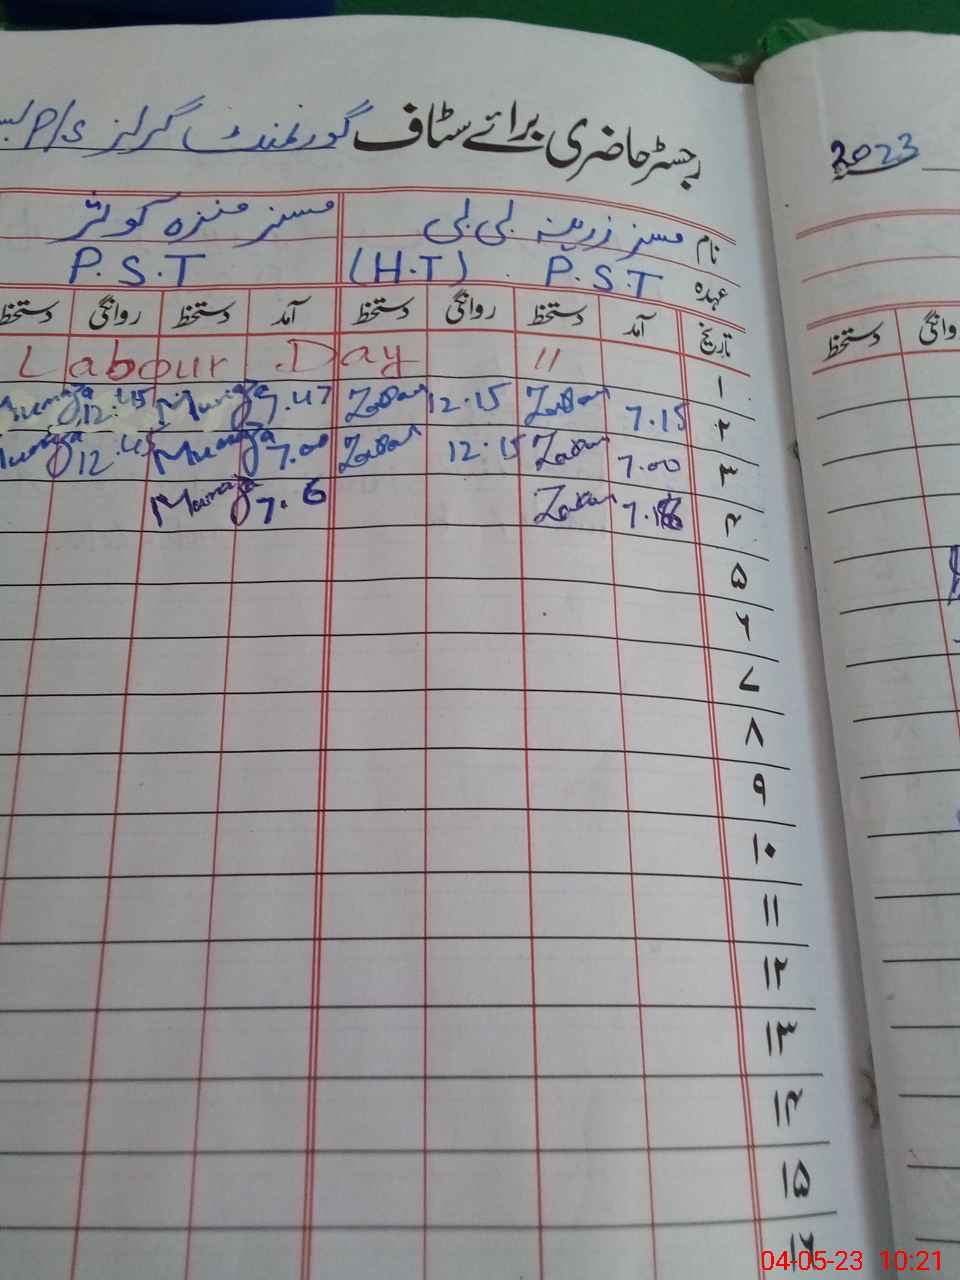 رجسٹر حاضری برائے سٹاف گورنمنٹ گرلز P/S
2023
نام مسز زرینہ بی بی مسز منزہ کوثر
عہدہ P.S.T (H.T) P.S.T
تاریخ آمد دستخط روانگی دستخط آمد دستخط روانگی دستخط
روانگی دستخط
۱ Labour Day 11
۲ 7.15 12.15 7.47 Muniza 12:45
۳ 7.00 12.15 7.00 Muniza 12.45
۴ 7. 6
۵
۶
۷
۸
۹
۱۰
۱۱
۱۲
۱۳
۱۴
۱۵
۱۶
04-05-23 10:21